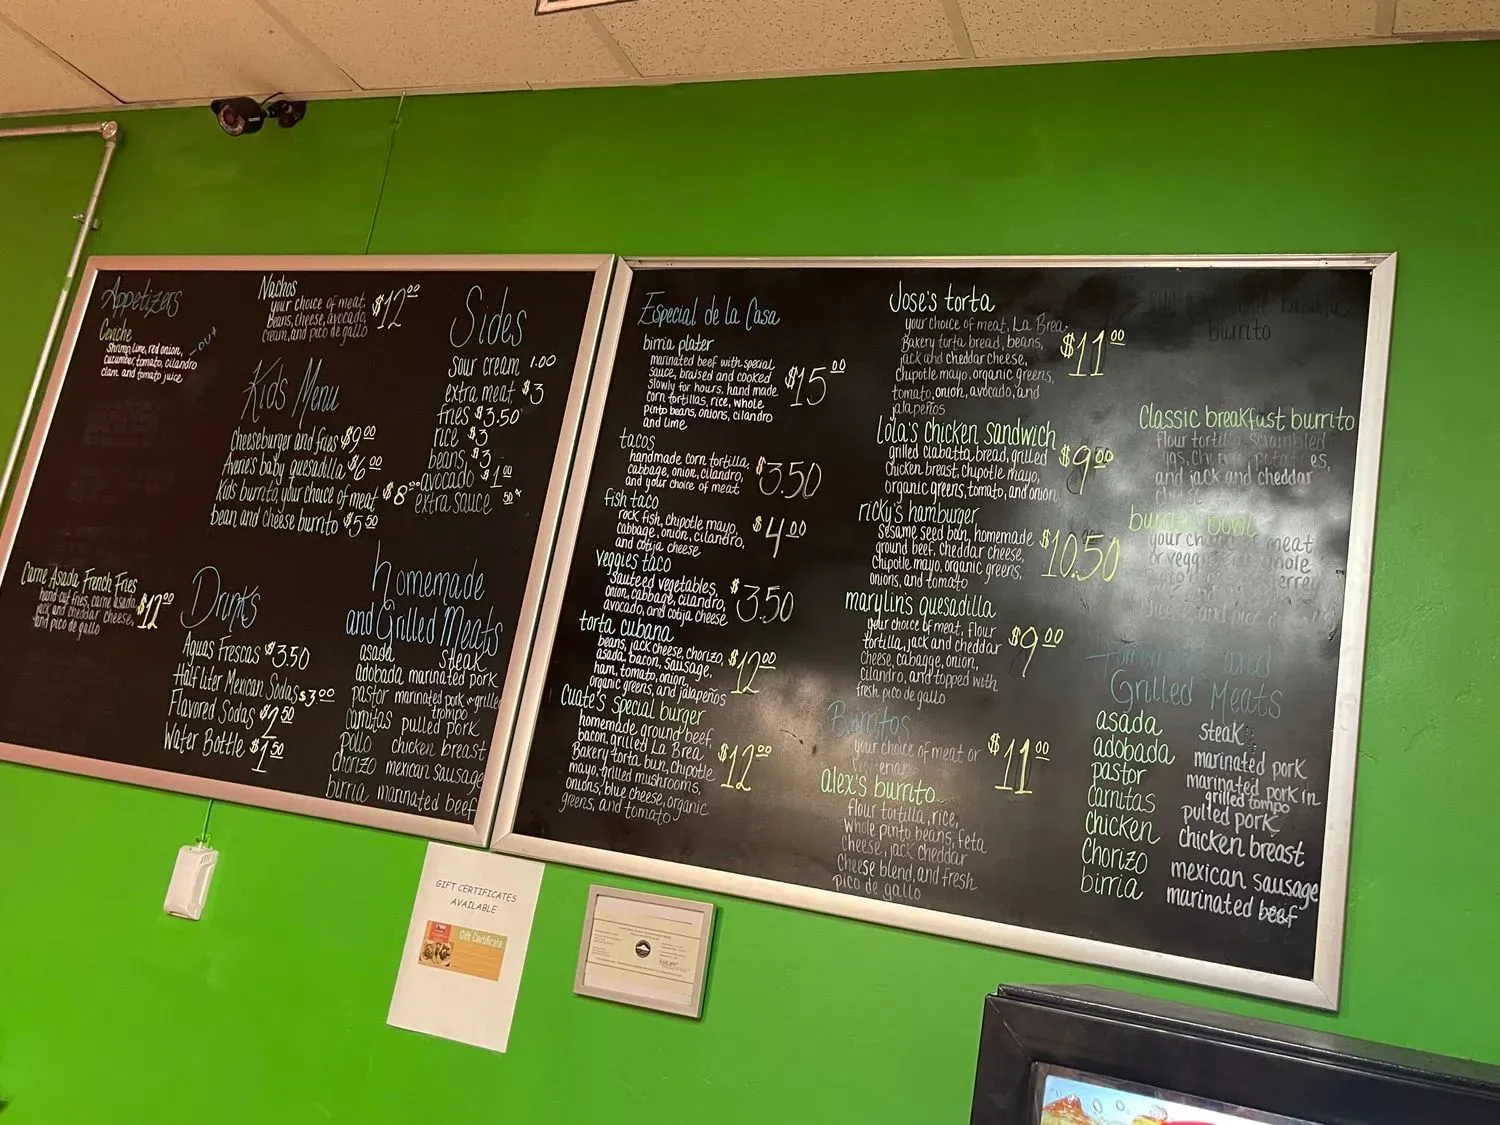 Appetizers
Ceviche
Shrimp, lime, red onion, - OUT
cucumber, tomato, cilandro
clam and tomato juice
Carne Asada French Fries
hand cut fries, carne asada,
jack and cheddar cheese, $12.00
and pico de gallo
Nachos
your choice of meat. $12.00
Beans, cheese, avocado,
cream, and pico de gallo
Kids Menu
Cheeseburger and fries $9.00
Avene's baby quesadilla $6.00
Kids burrito, your choice of meat $8.00
bean and cheese burrito $5.50
Sides
sour cream 1.00
extra meat $3
fries $3.50
rice $3
beans $3
avocado $1.00
extra sauce .50¢
Drinks
Aguas Frescas $3.50
Half liter Mexican Sodas $3.00
Flavored Sodas $2.50
Water Bottle $1.50
homemade
and Grilled Meats
asada steak
adobada marinated pork
pastor marinated pork grilled
trompo
carnitas pulled pork
pollo chicken breast
chorizo mexican sausage
birria marinated beef
Especial de la Casa
birria plater
marinated beef with special
sauce, braised and cooked
slowly for hours, hand made $15.00
corn tortillas, rice, whole
pinto beans, onions, cilandro
and lime
tacos
handmade corn tortilla,
cabbage, onion, cilandro, $3.50
and your choice of meat
fish taco
rock fish, chipotle mayo,
cabbage, onion, cilandro, $4.00
and cotija cheese
veggies taco
sauteed vegetables,
onion, cabbage, cilandro, $3.50
avocado, and cotija cheese
torta cubana
beans, jack cheese, chorizo,
asada, bacon, sausage, $12.00
ham, tomato, onion,
organic greens, and jalapeños
cuate's special burger
homemade ground beef,
bacon, grilled La Brea
Bakery torta bun, chipotle $12.00
mayo, grilled mushrooms,
onions, blue cheese, organic
greens, and tomato
Jose's torta
your choice of meat, La Brea
Bakery torta bread, beans, $11.00
jack and cheddar cheese,
chipotle mayo, organic greens,
tomato, onion, avocado, and
jalapeños
Lola's chicken sandwich
grilled ciabatta bread, grilled $9.00
chicken breast, chipotle mayo,
organic greens, tomato, and onion
ricky's hamburger
sesame seed bun, homemade
ground beef, cheddar cheese, $10.50
chipotle mayo, organic greens,
onions, and tomato
marylin's quesadilla
your choice of meat, flour
tortilla, jack and cheddar $9.00
cheese, cabagge, onion,
cilandro, and topped with
fresh pico de gallo
Burritos
your choice of meat or $11.00
alex's burrito
flour tortilla, rice,
whole pinto beans, feta
cheese, jack cheddar
cheese blend, and fresh
pico de gallo
burrito
Classic breakfust burrito
flour tortilla, scrambled
and jack and cheddar
burrito bowl
your choice of meat
Homemade and
Grilled Meats
asada steak
adobada marinated pork
pastor marinated pork in
grilled tompo
carnitas pulled pork
chicken chicken breast
chorizo mexican sausage
birria marinated beef
GIFT CERTIFICATES
AVAILABLE
Gift Certificate